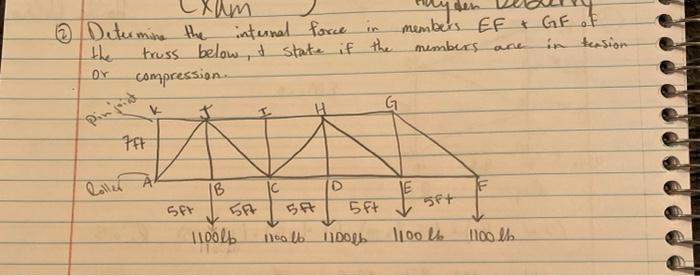 Exam Hayden
② Determine the internal force in members EF & GF of
the truss below, & state if the members are in tension
or compression.
pin joint K J I H G
7ft
Roller A B C D E F
5ft 5ft 5ft 5ft 5ft
1100lb 1100 lb 1100lb 1100 lb 1100 lb